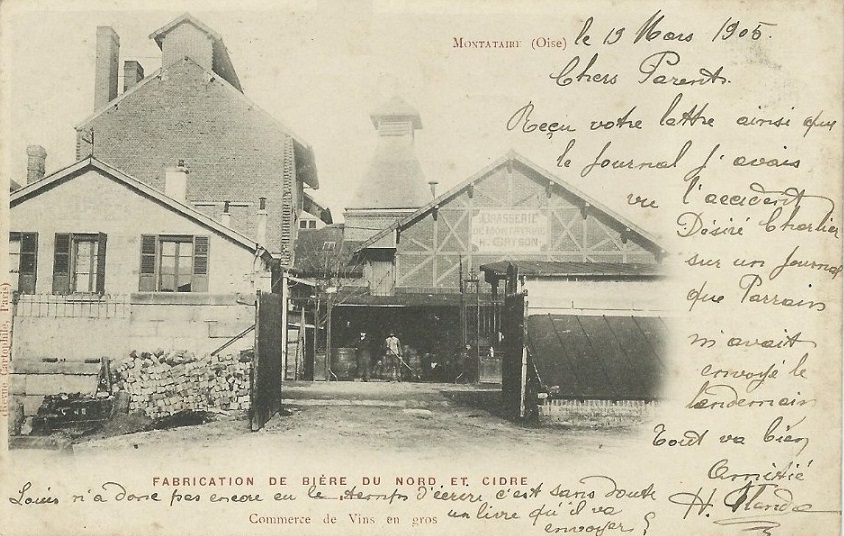 MONTATAIRE (Oise)
le 19 Mars 1905.
Chers Parents.
Reçu votre lettre ainsi que
le Journal J'avais
vu l'accident
Désiré Charlier
sur un Journal
que Parrain
m'avait
envoyé le
lendemain
Tout va bien
Amitié
BRASSERIE
DE MONTATAIRE
Cartophilo, Paris)
FABRICATION DE BIÈRE DU NORD ET CIDRE
Louis n'a donc pas encore eu le temps d'écrire c'est sans doute
un livre qu'il va
envoyer
Commerce de Vins en gros